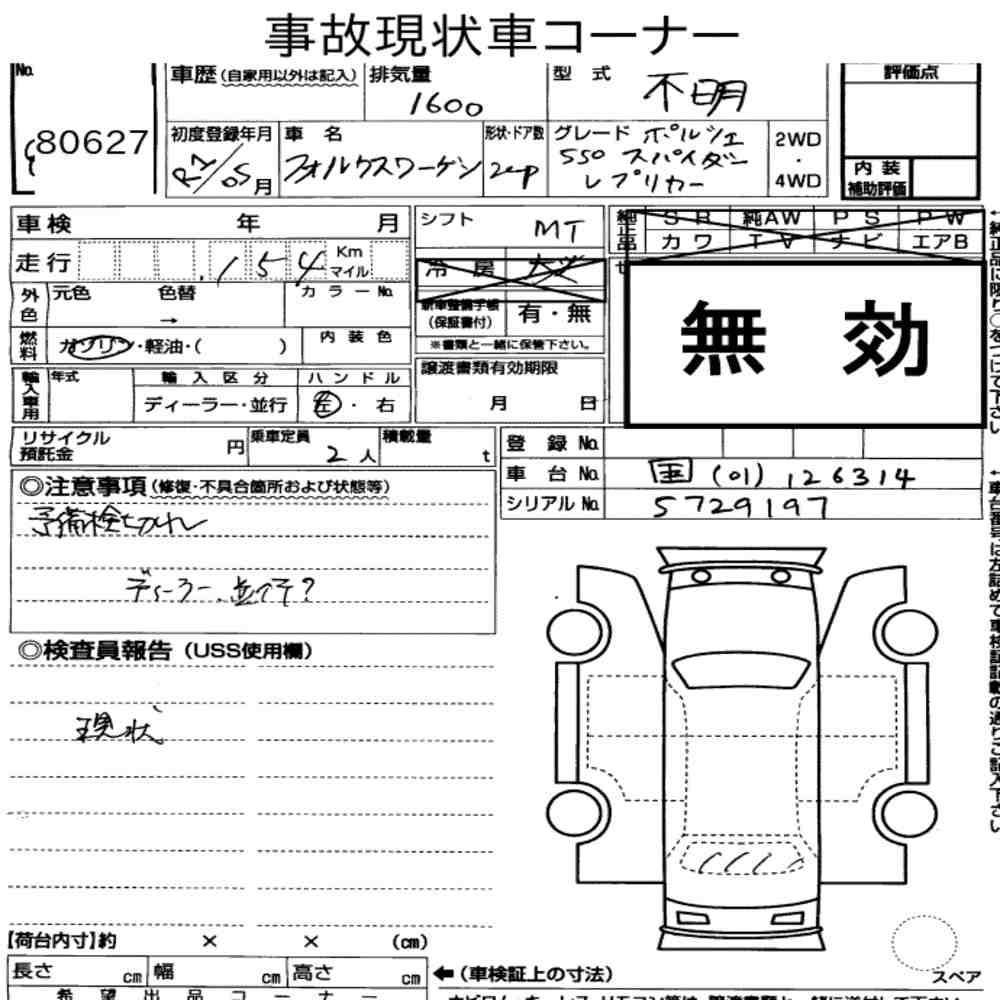 事故現状車コーナー
No.
80627
車歴(自家用以外は記入)
排気量
1600
型 式
不明
評価点
初度登録年月
R1/05月
車 名
フォルクスワーゲン
形状・ドア数
2cp
グレード ポルシェ
550 スパイダー
レプリカー
2WD
・
4WD
内 装
補助評価
車検 年 月
シフト
MT
純正品
S R 純AW P S P W
カワ T V ナビ エアB
走行 154 Km マイル
冷 房
外色
元色 色替 →
カラーNo.
新車整備手帳
(保証書付)
有・無
※書類と一緒に保管下さい。
燃料
ガソリン・軽油・( )
内 装 色
無 効
輸入車用
年式
輸 入 区 分
ディーラー・並行
ハ ン ド ル
左 ・ 右
譲渡書類有効期限
月 日
リサイクル
預託金
円
乗車定員
2 人
積載量
t
登 録 No.
車 台 No. 国 (01) 126314
シリアル No. 5729197
◎注意事項(修復・不具合箇所および状態等)
予備検切れ
ディーラー、並行?
◎検査員報告(USS使用欄)
現状
【荷台内寸】約 × × (cm)
長さ cm 幅 cm 高さ cm
←(車検証上の寸法)
スペア
希 望 出 品 コ ー ナ ー